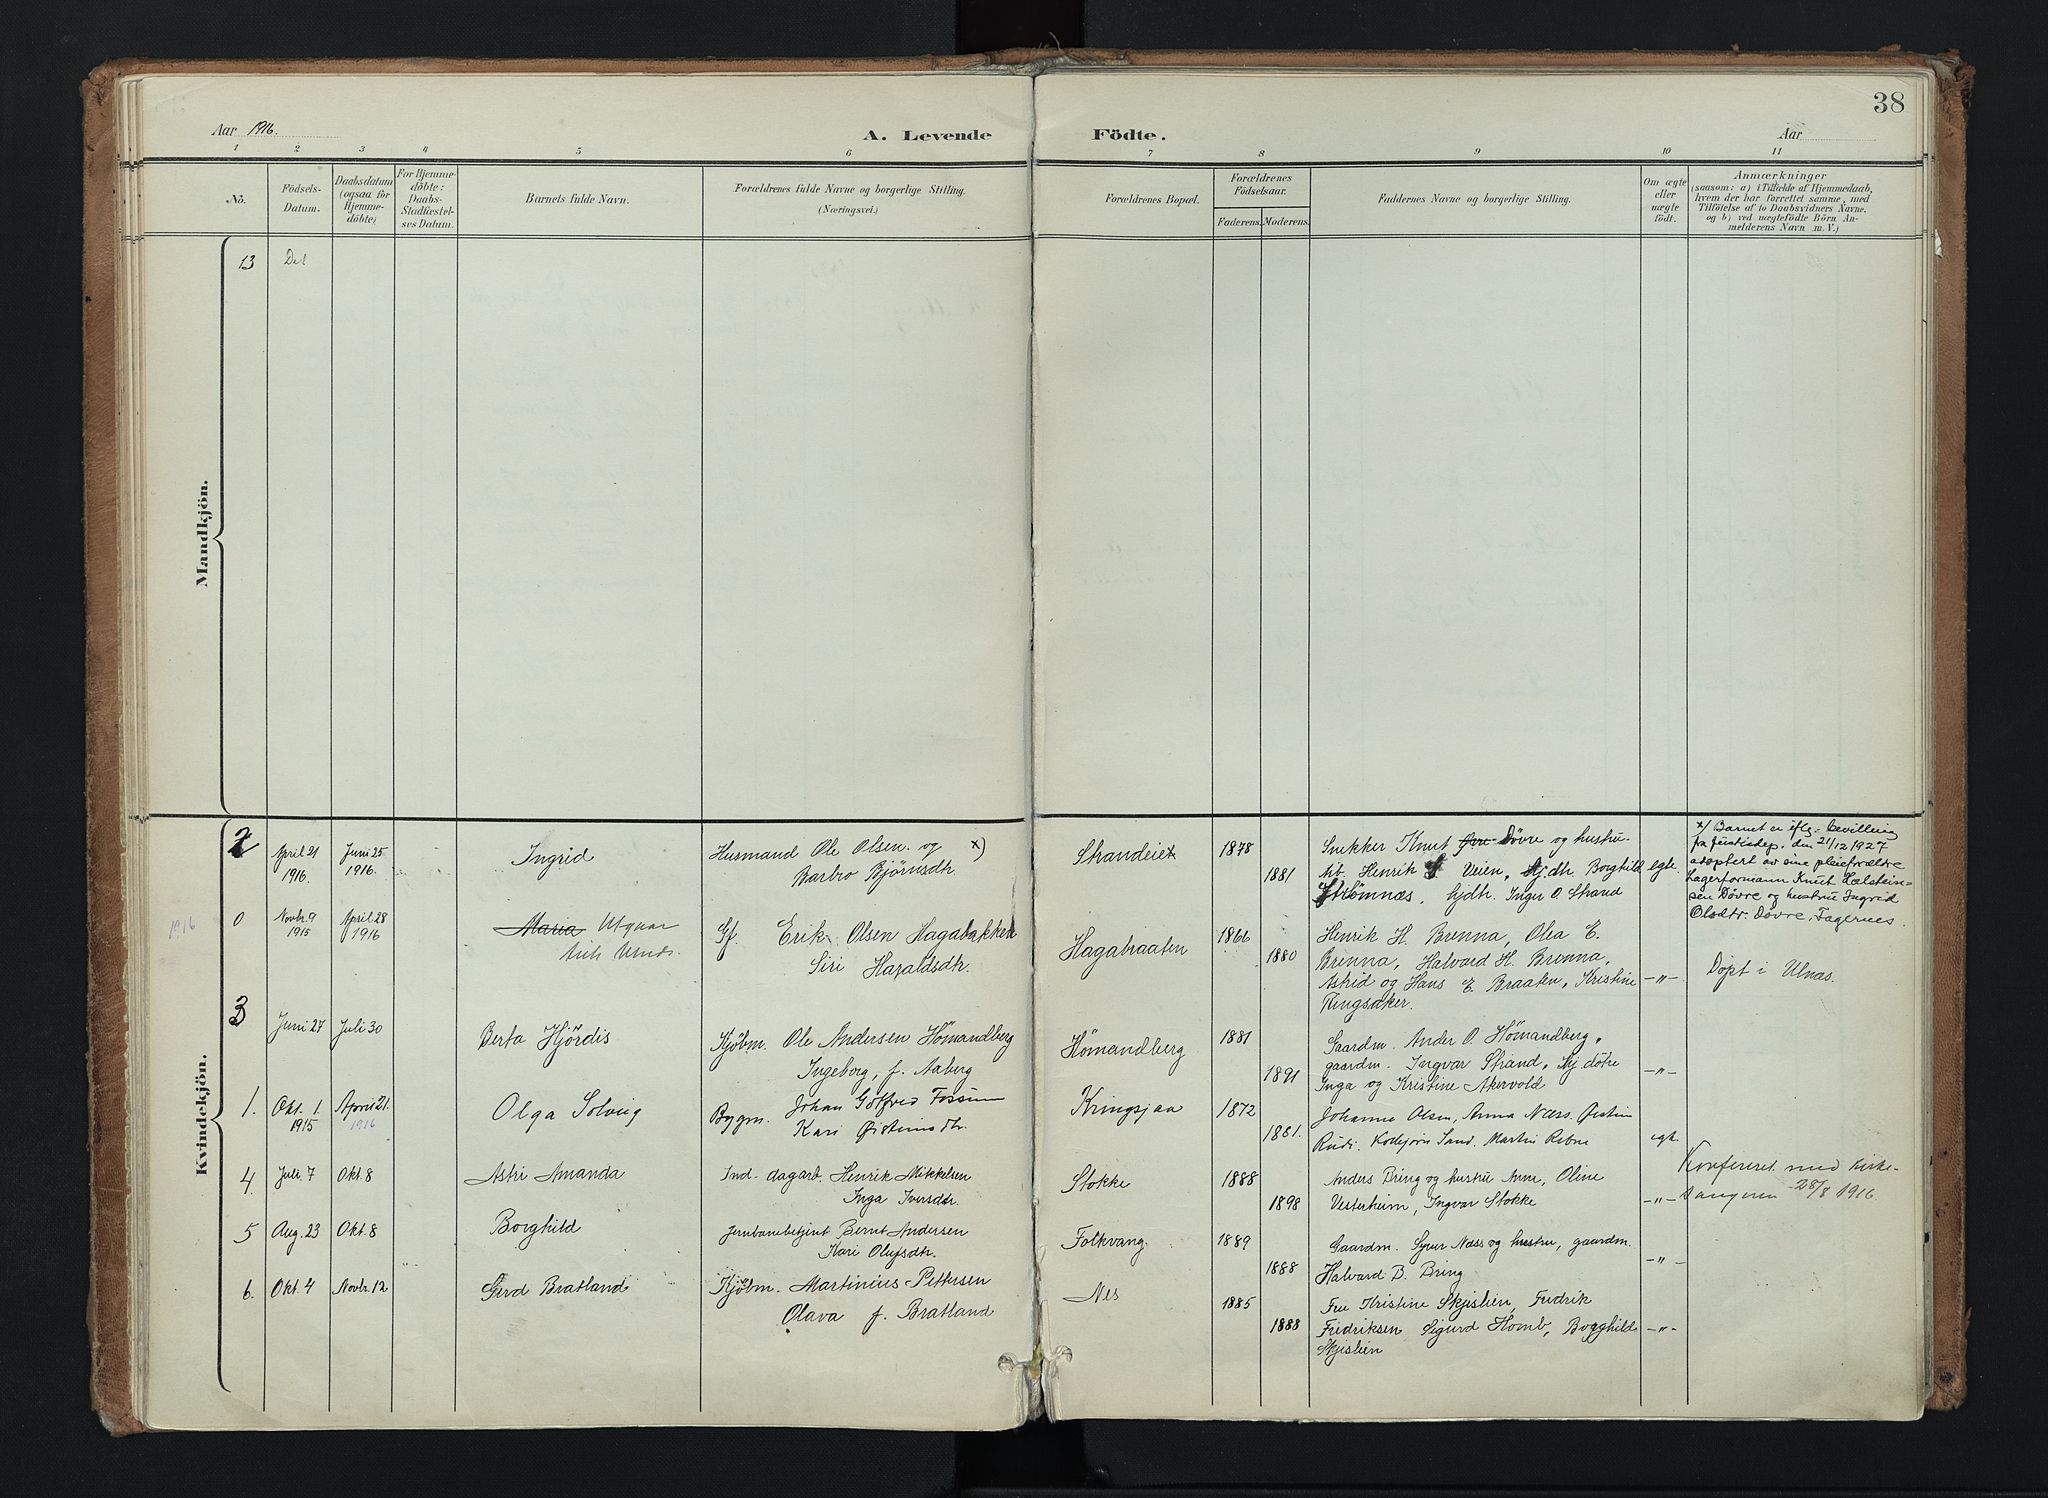 38
Aar 1916.
A. Levende
Födte.
Aar
1 2 3 4 5 6 7 8 9 10 11
Nö.
Födsels-
Datum.
Daabsdatum
(ogsaa for
Hjemme-
döbte)
For Hjemme-
döbte:
Daabs-
Stadfæstel-
ses Datum.
Barnets fulde Navn.
Forældrenes fulde Navne og borgerlige Stilling.
(Næringsvei.)
Forældrenes Bopæl.
Forældrenes
Födselsaar.
Faderens.
Moderens.
Faddernes Navne og borgerlige Stilling.
Om ægte
eller
uægte
födt.
Anmærkninger
(saasom: a) i Tilfælde af Hjemmedaab,
hvem der har forrettet samme, med
Tilföielse af to Daabsvidners Navne.
og b) ved uægtefödte Börn An-
melderens Navn m. V.)
Mandkjön.
13
Kvindekjön.
2
April 21
1916.
Juni 25
1916.
Ingrid
Husmand Ole Olsen. og x)
Barbro Bjørnsdtr.
Strandeiet
1878
1881
Snekker Knut Døvre og hustru.
Arb. Henrik Veien, Gjdtr. Borghild
Strømnæs, Gjdtr. Inger O. Strand
egte.
x) Barnet er iflg. bevilling
fra justisdep. den 21/12 1927
adoptert av sine pleieforældre
Lagerformann Knut Halstein-
sen Døvre og hustru Ingrid
Olsdtr. Døvre, Fagernes.
1916
0
Novbr. 9
1915
April 28
1916
Maria Utgaar
Gf. Erik Olsen Hagabakken
Siri Haraldsdtr.
Hagabraaten
1866
1880
Henrik H. Brenna, Olea E.
Brenna, Halvard H. Brenna,
Astrid og Hans E. Braaten, Kristine
Ringsaker.
-"-
Døpt i Ulnæs.
3
Juni 27
Juli 30
Berta Hjördis
Kjöbm. Ole Andersen Hömandberg
Ingeborg, f. Aaberg
Hömandberg
1881
1891
Gaardm. Ander O. Hömandberg,
gaardm. Ingvar Strand,
Inga og Kristine Akervold
-"-
1.
Okt. 1.
1915
April 21.
1916
Olga Solveig
Bygm. Johan Gotfred Fossum
Kari Øistensdtr.
Kringsjaa
1872
1881.
Johanna Olsen, Anna Næss. Øistein
Rudi. Sand. Martin
egt.
4.
Juli 7
Okt. 8
Astri Amanda
Ind. dagarb. Henrik Mikkelsen
Inga Iversdtr.
Stokke
1888
1898
Anders Bring og hustru Anne, Oline
Vesterheim, Ingvar Stokke
-"-
Konfereret med kirke-
sangeren 28/8 1916.
5
Aug. 23
Okt. 8
Borghild
Jernbanebetjent Bernt Andersen
Kari Olufsdtr.
Folkvang
1889
1888
Gaardm. Syver Næss og hustru, gaardm.
Halvard B. Bring
-"-
6.
Okt. 4
Novbr. 12
Gerd Bratland
Kjöbm. Martinius Pettersen
Olava f. Bratland
Nes
1885
1888
Fru Kristine Skjislien, Fredrik
Fredriksen Sigurd Homb, Borghild
Skjislien
-"-